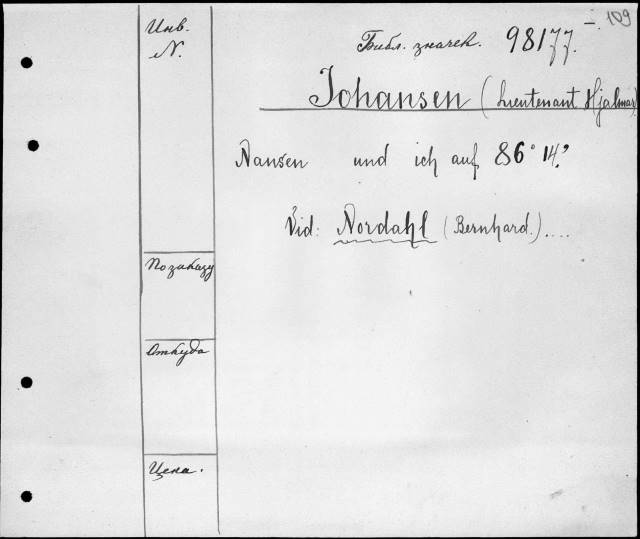 – 109
Инв.
N.
Библ. значек. 98177.
Johansen (Lieutenant Hjalmar)
Nansen und ich auf 86° 14'
Vid: Nordahl (Bernhard.)....
По заказу
Откуда
Цена.